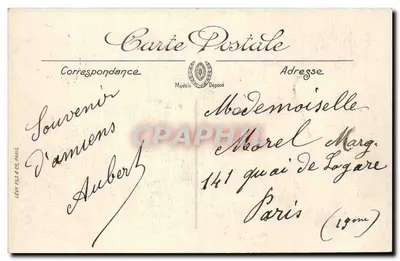 Carte Postale
Correspondance
Adresse
Modèle Déposé
Souvenir
d'amiens
Aubert
Mademoiselle
Morel Marg.
141 quai de Logare
Paris
(19me)
CPAPHIL
LÉVY FILS & CIE, PARIS